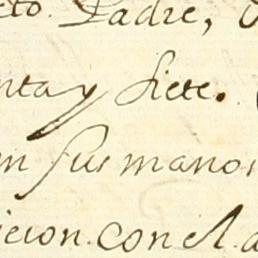 cto. Padre,
nta y siete.
en sus manos
icion. con el a